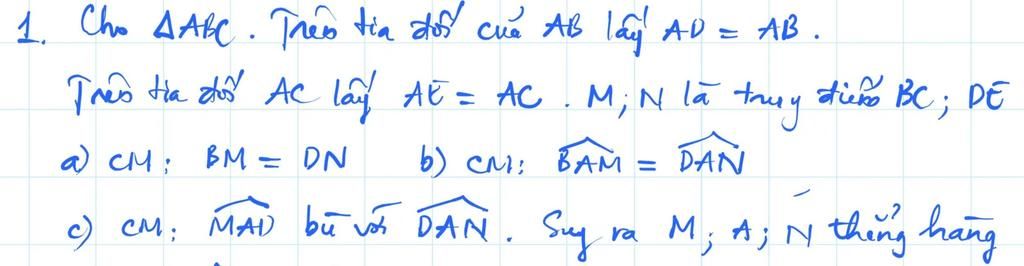 1. Cho ΔABC. Trên tia đối của AB lấy AD = AB.
Trên tia đối AC lấy AE = AC. M; N là trung điểm BC; DE
a) CM: BM = DN b) CM: \widehat{BAM} = \widehat{DAN}
c) CM: \widehat{MAD} bù với \widehat{DAN}. Suy ra M; A; N thẳng hàng